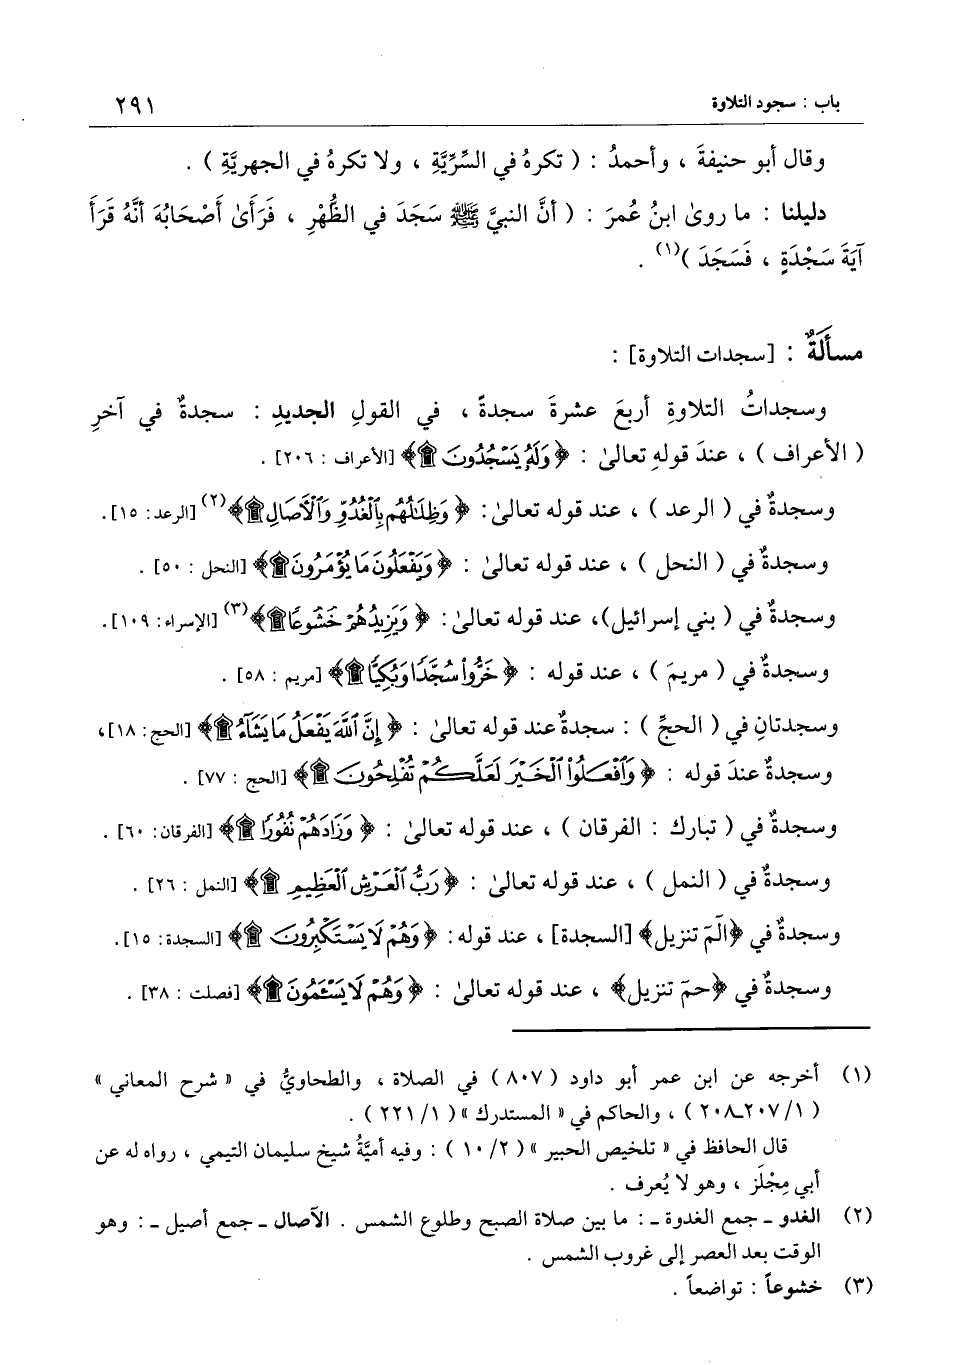 باب : سجود التلاوة ٢٩١
وقال أبو حنيفةَ ، وأحمدُ : ( تكرهُ في السِّرِّيَّةِ ، ولا تكرهُ في الجهريَّةِ ) .
دليلنا : ما روىٰ ابنُ عُمرَ : ( أنَّ النبيَّ ﷺ سَجَدَ في الظُّهْرِ ، فَرَأَىٰ أَصْحَابُهُ أَنَّهُ قَرَأَ
آيَةَ سَجْدَةٍ ، فَسَجَدَ )(١) .
مسألَةٌ : [سجدات التلاوة] :
وسجداتُ التلاوةِ أربعَ عشرةَ سجدةً ، في القولِ الجديدِ : سجدةٌ في آخرِ
( الأعراف ) ، عندَ قولهِ تعالىٰ : ﴿ وَلَهُۥ يَسْجُدُونَ ۩﴾ [الأعراف : ٢٠٦] .
وسجدةٌ في ( الرعد ) ، عند قوله تعالىٰ : ﴿ وَظِلَٰلُهُم بِٱلْغُدُوِّ وَٱلْأَصَالِ ۩﴾(٢) [الرعد: ١٥].
وسجدةٌ في ( النحل ) ، عند قوله تعالىٰ : ﴿ وَيَفْعَلُونَ مَا يُؤْمَرُونَ ۩﴾ [النحل : ٥٠] .
وسجدةٌ في ( بني إسرائيل)، عند قوله تعالىٰ : ﴿ وَيَزِيدُهُمْ خُشُوعًا ۩﴾(٣) [الإسراء: ١٠٩].
وسجدةٌ في ( مريمَ ) ، عند قوله : ﴿ خَرُّوا۟ سُجَّدًا وَبُكِيًّا ۩﴾ [مريم : ٥٨] .
وسجدتانِ في ( الحجِّ ) : سجدةٌ عند قوله تعالىٰ : ﴿ إِنَّ ٱللَّهَ يَفْعَلُ مَا يَشَآءُ ۩﴾ [الحج: ١٨]،
وسجدةٌ عندَ قوله : ﴿ وَٱفْعَلُوا۟ ٱلْخَيْرَ لَعَلَّكُمْ تُفْلِحُونَ ۩﴾ [الحج : ٧٧] .
وسجدةٌ في ( تبارك : الفرقان ) ، عند قوله تعالىٰ : ﴿ وَزَادَهُمْ نُفُورًا ۩﴾ [الفرقان: ٦٠] .
وسجدةٌ في ( النمل ) ، عند قوله تعالىٰ : ﴿ رَبُّ ٱلْعَرْشِ ٱلْعَظِيمِ ۩﴾ [النمل : ٢٦] .
وسجدةٌ في ﴿الٓمٓ تنزيل﴾ [السجدة] ، عند قوله: ﴿ وَهُمْ لَا يَسْتَكْبِرُونَ ۩﴾ [السجدة: ١٥].
وسجدةٌ في ﴿حمٓ تنزيل﴾ ، عند قوله تعالىٰ : ﴿ وَهُمْ لَا يَسْـَٔمُونَ ۩﴾ [فصلت : ٣٨] .
(١) أخرجه عن ابن عمر أبو داود ( ٨٠٧ ) في الصلاة ، والطحاويُّ في « شرح المعاني »
( ١/ ٢٠٧ـ٢٠٨ ) ، والحاكم في « المستدرك » ( ١/ ٢٢١ ) .
قال الحافظ في « تلخيص الحبير » ( ٢/ ١٠ ) : وفيه أميَّةُ شيخ سليمان التيمي ، رواه له عن
أبي مِجْلَز ، وهو لا يُعرف .
(٢) الغدو ـ جمع الغدوة ـ : ما بين صلاة الصبح وطلوع الشمس . الآصال ـ جمع أصيل ـ : وهو
الوقت بعد العصر إلى غروب الشمس .
(٣) خشوعاً : تواضعاً .